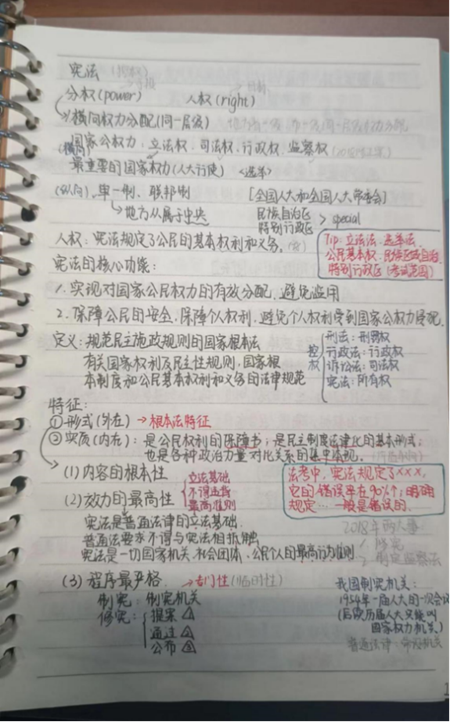 宪法
分权(power) 人权(right)
横向权力分配(同一层级)
国家公权力:立法权、司法权、行政权、监察权
(横向)
最重要的国家权力(人大行使) <选举>
(纵向)、单一制、联邦制 [全国人大和全国人大常委会]
地方人属于中央 民族自治区
特别行政区 > special
人权:宪法规定了公民的基本权利和义务。
Tip:立法法、选举法、
公民基本权、民族区域自治、
特别行政区(考试范围)
宪法的核心功能:
1.实现对国家公民权力的有效分配,避免滥用
2.保障公民的安全,保障个人权利,避免个人权利受到国家公权力侵犯
定义:规范民主施政规则的国家根本法
有关国家权利及民主性规则、国家根
本制度和公民基本权利和义务的法律规范
控权
刑法:刑罚权
行政法:行政权
诉讼法:司法权
宪法:所有权
特征:
①形式(外在)→根本法特征
②实质(内在):是公民权利的保障书;是民主制度法律化的基本形式;
也是各种政治力量对比关系的集中体现。
(1)内容的根本性
(2)效力的最高性
立法基础
不得抵触
最高准则
法考中,宪法规定了×××,
它的错误率在90%;明确
规定…一般是错误的。
宪法是普通法律的立法基础.
普通法律不得与宪法相抵触
宪法是一切国家机关、社会团体、公民个人的最高行为准则
2018年
修宪
监察法
(3)程序最严格 →专门性(临时性)
制宪:制宪机关
修宪:提案
通过
公布
我国制宪机关:
1954年一届人大的一次会议
(后续历届人大只能叫
国家权力机关)
普通法律